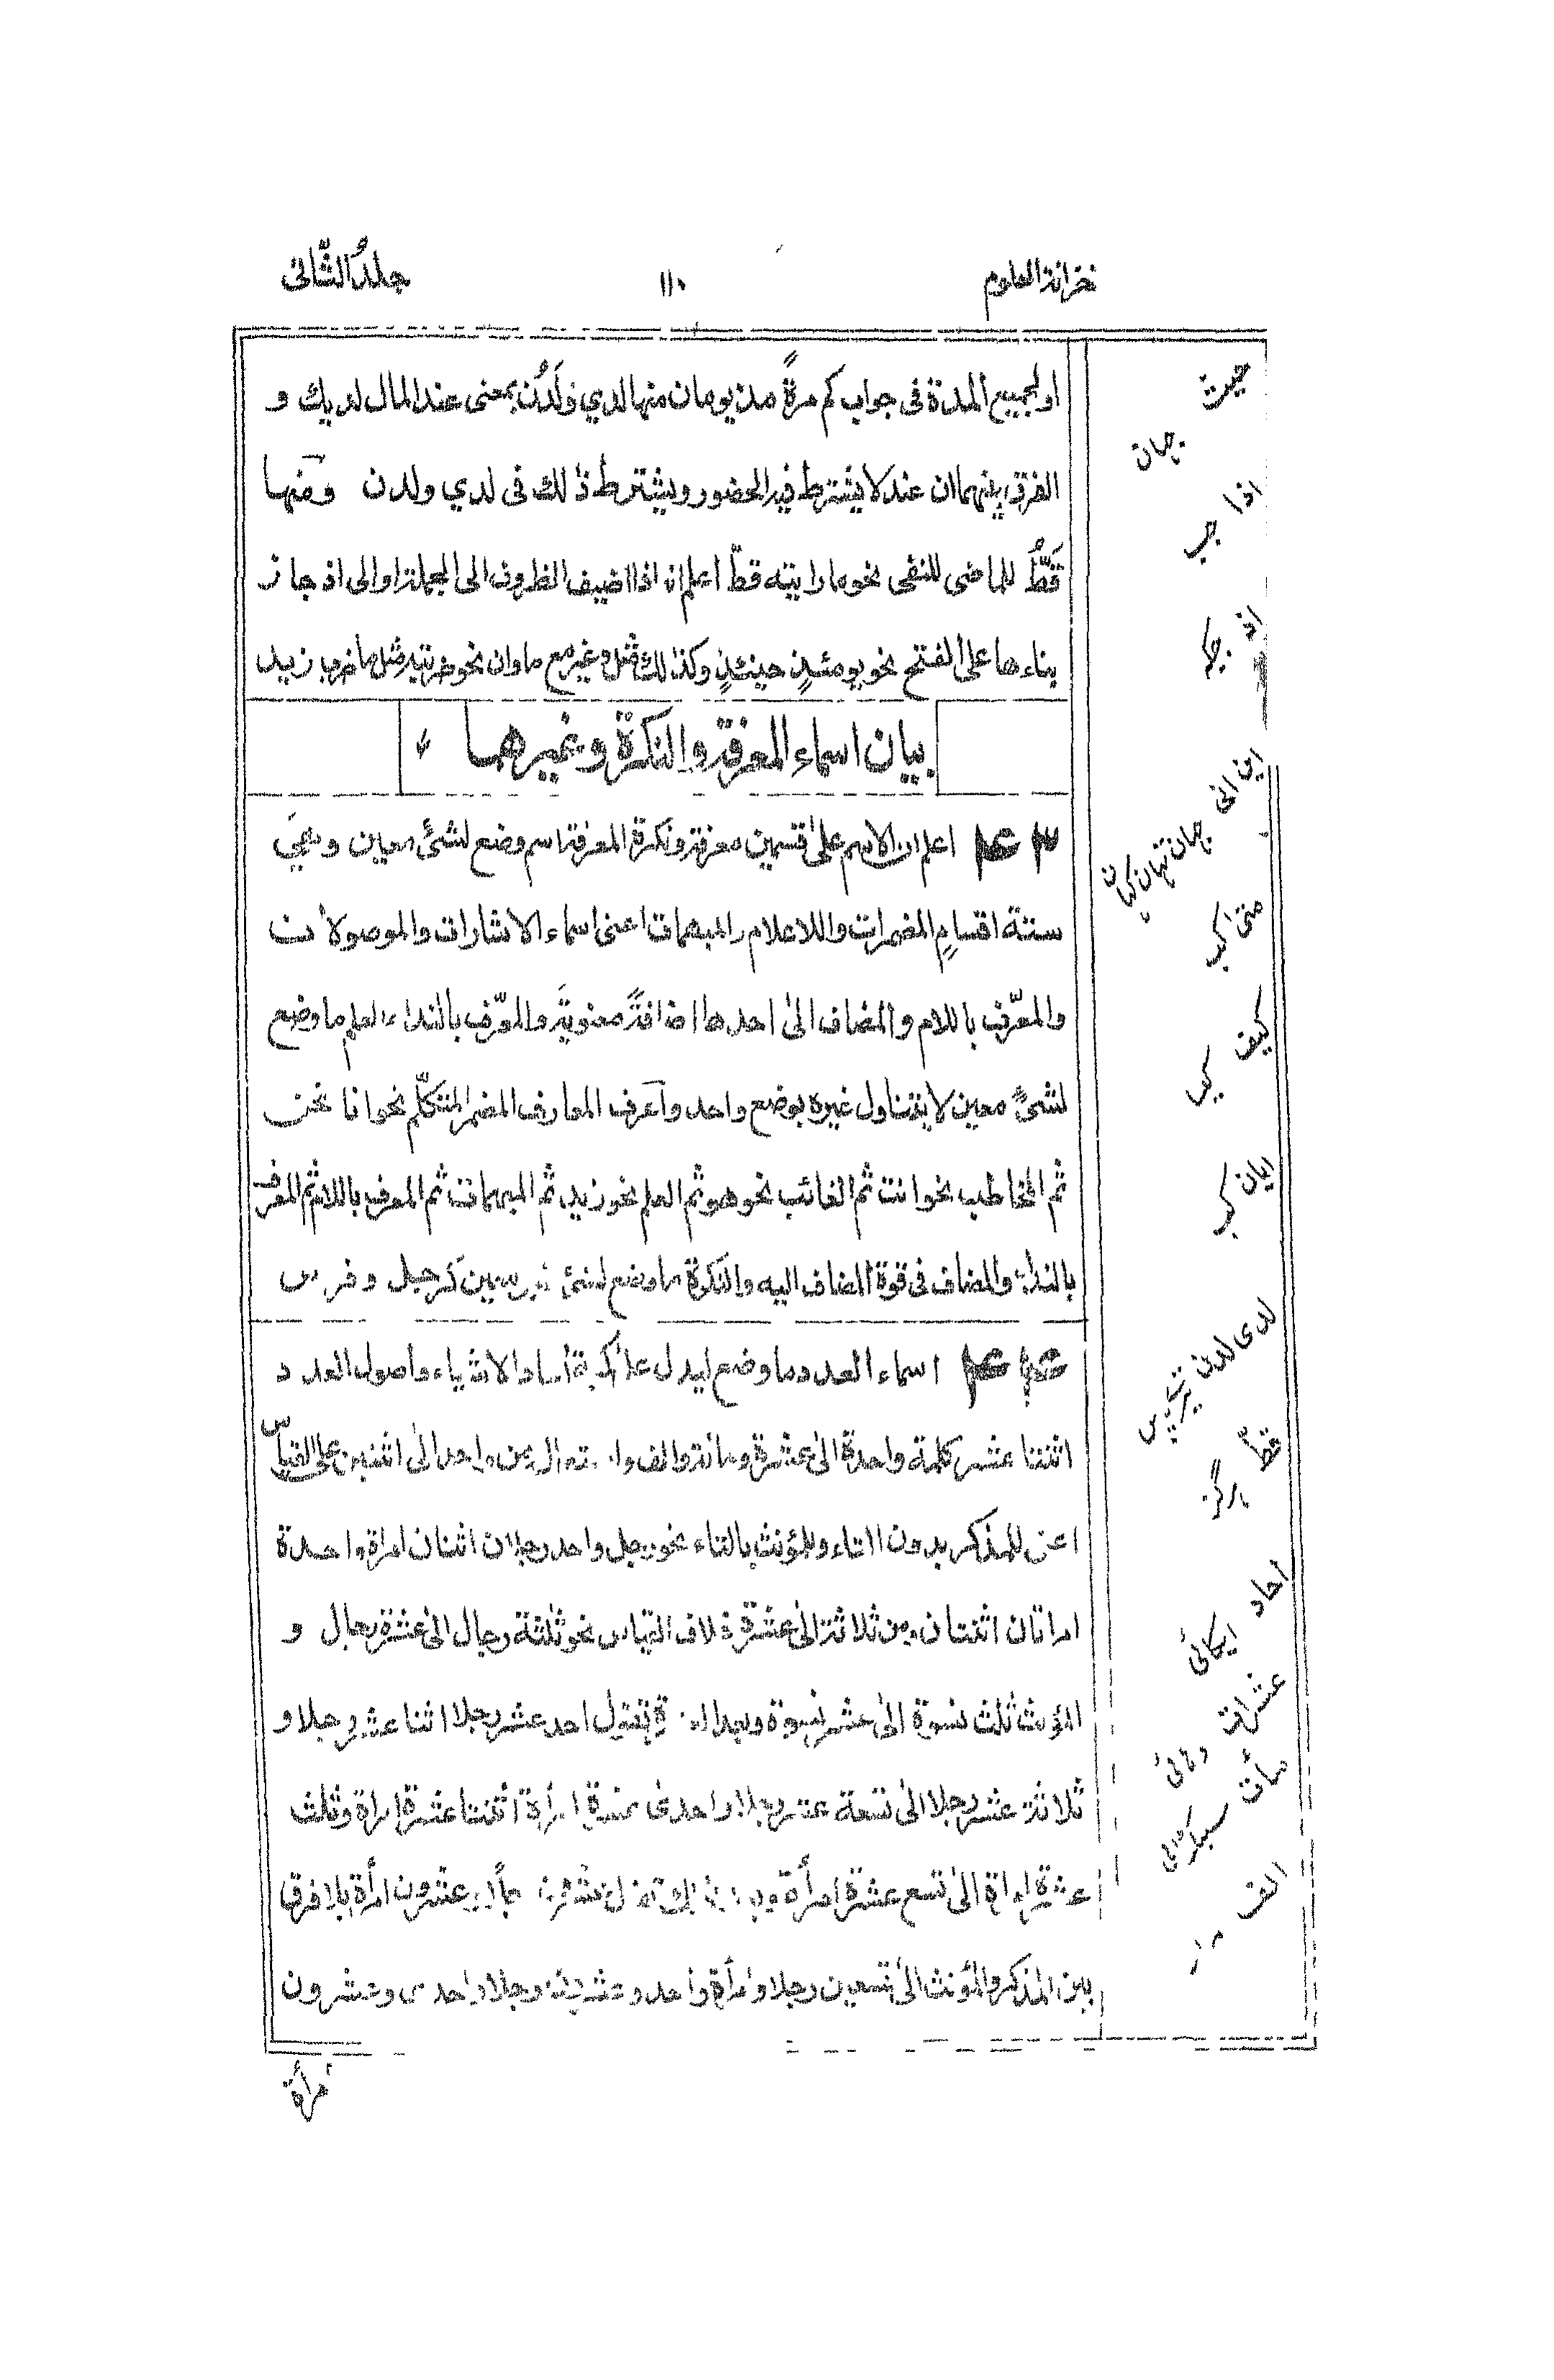 خزانة العلوم
١١٠
جلدُ الثّانی
اولجميع المدة فی جواب كم مرةً مذ يومان منها لدي ولَدُن بمعنی عند المال لديك و
الفرق بينهما ان عند لا يشترط فيه الحضور ويشترط ذلك فی لدي ولدن ومنها
قَطُّ للماضی للنفی نحو ما رايته قطّ اعلم انه اذا اضيف الظروف الی الجملة او الی اذ جاز
بناءها علی الفتح نحو يومئذٍ حينئذٍ وكذلك مثل وغير مع ما وان نحو ضربته مثل ما ضرب زيد
بيان اسماء المعرفة والنكرة وغيرهما
اعلم ان الاسم علیٰ قسمين معرفة ونكرة المعرفة اسم وضع لشئ معين وهی
ستة اقسامٍ المضمرات واللاعلام والمبهمات اعنی اسماء الاشارات والموصولات
والمعرّف باللام والمضاف الیٰ احدها اضافةً معنويةً والمعرّف بالنداء العلم ما وضع
لشئ معين لا يتناول غيره بوضع واحد واعرف المعارف المضمر المتكلّم نحو انا نحن
ثم المخاطب نحو انت ثم الغائب نحو هو ثم العلم نحو زيد ثم المبهمات ثم المعرف باللام ثم المعرف
بالنداء والمضاف فی قوة المضاف اليه والنكرة ما وضع لشئ غير معين كرجل وفرس
اسماء العدد ما وضع ليدل علیٰ كمية أحاد الاشياء واصول العدد
اثنتا عشر كلمة واحدة الیٰ عشرة ومائة والف من واحد الی اثنين علی القياس
اعنی للمذكر بدون التاء وللمؤنث بالتاء نحو رجل واحد رجلان اثنان امراة واحدة
امراتان اثنتان ومن ثلاثة الیٰ عشرة خلاف القياس نحو ثلثة رجال الیٰ عشرة رجال و
المؤنث ثلث نسوة الیٰ عشر نسوة وبعد تقول احد عشر رجلا اثنا عشر رجلا و
ثلاثة عشر رجلا الیٰ تسعة عشر رجلا واحدی عشرة امرأة اثنتا عشرة امراة وثلث
عشرة امراة الیٰ تسع عشرة امرأة عشرون امرأة بلا فرق
بين المذكر والمؤنث الیٰ تسعين رجلا وامرأة واحد وعشرون رجلا واحدی وعشرون
امرأة
حيث
جہان
اذا
جب
اذ
جبکہ
این انی
جہان تہان کہان
متی
کب
کیف
کیسا
ایان
کب
لدی لدن
قطّ
ہرگز
احاد
ایکائی
عشرات
دہائی
مأت
سیکڑائی
الف